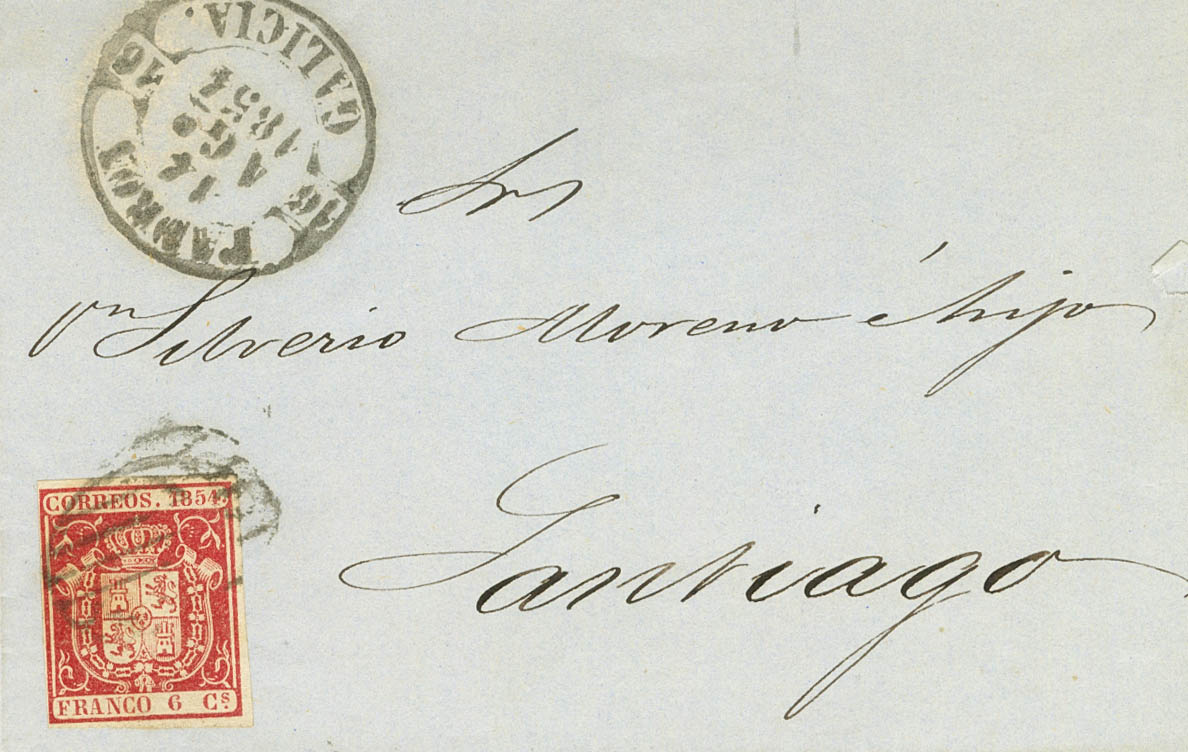 GALICIA.
26
14
AGo
1854
26
PADRON
Srs
Dn Silverio Moreno é hijo
Santiago
CORREOS. 1854.
FRANCO 6 Cs